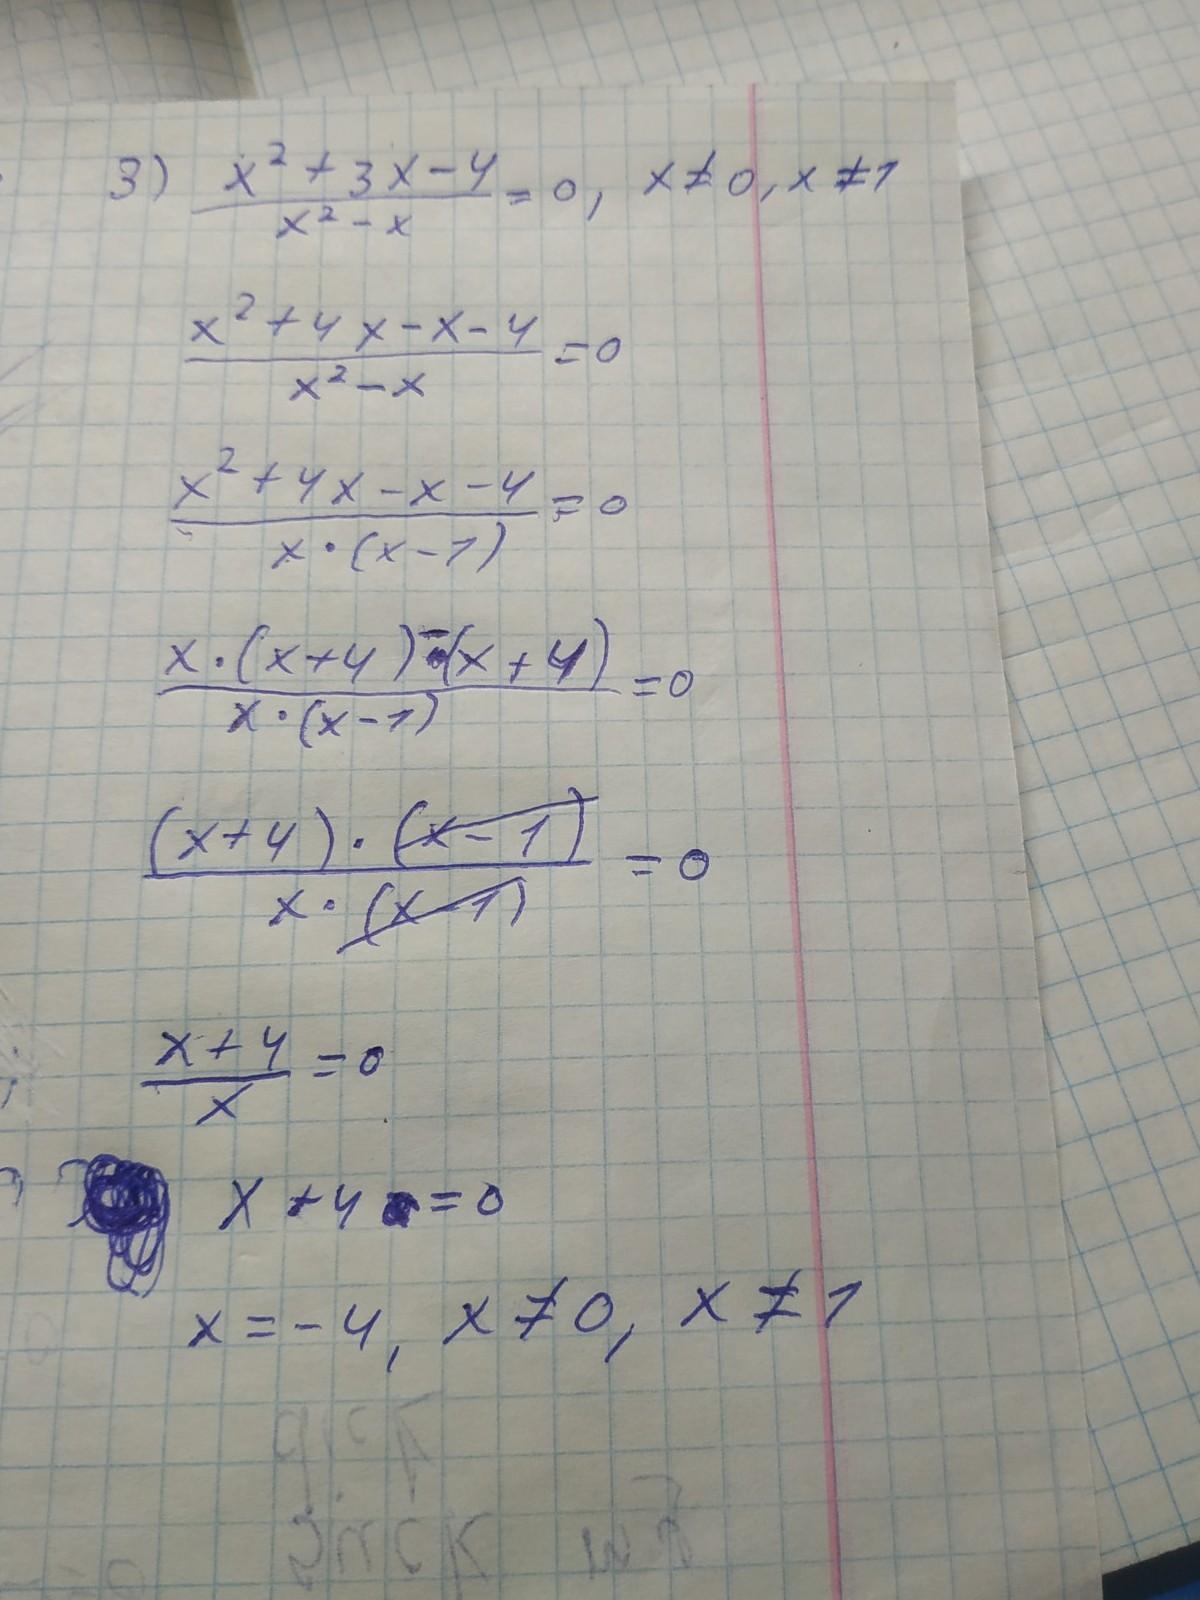 3) x² + 3x - 4 / x² - x = 0, x ≠ 0, x ≠ 1
x² + 4x - x - 4 / x² - x = 0
x² + 4x - x - 4 / x · (x - 1) = 0
x · (x + 4) - (x + 4) / x · (x - 1) = 0
(x + 4) · (x - 1) / x · (x - 1) = 0
x + 4 / x = 0
x + 4 = 0
x = - 4, x ≠ 0, x ≠ 1
dick
suck my